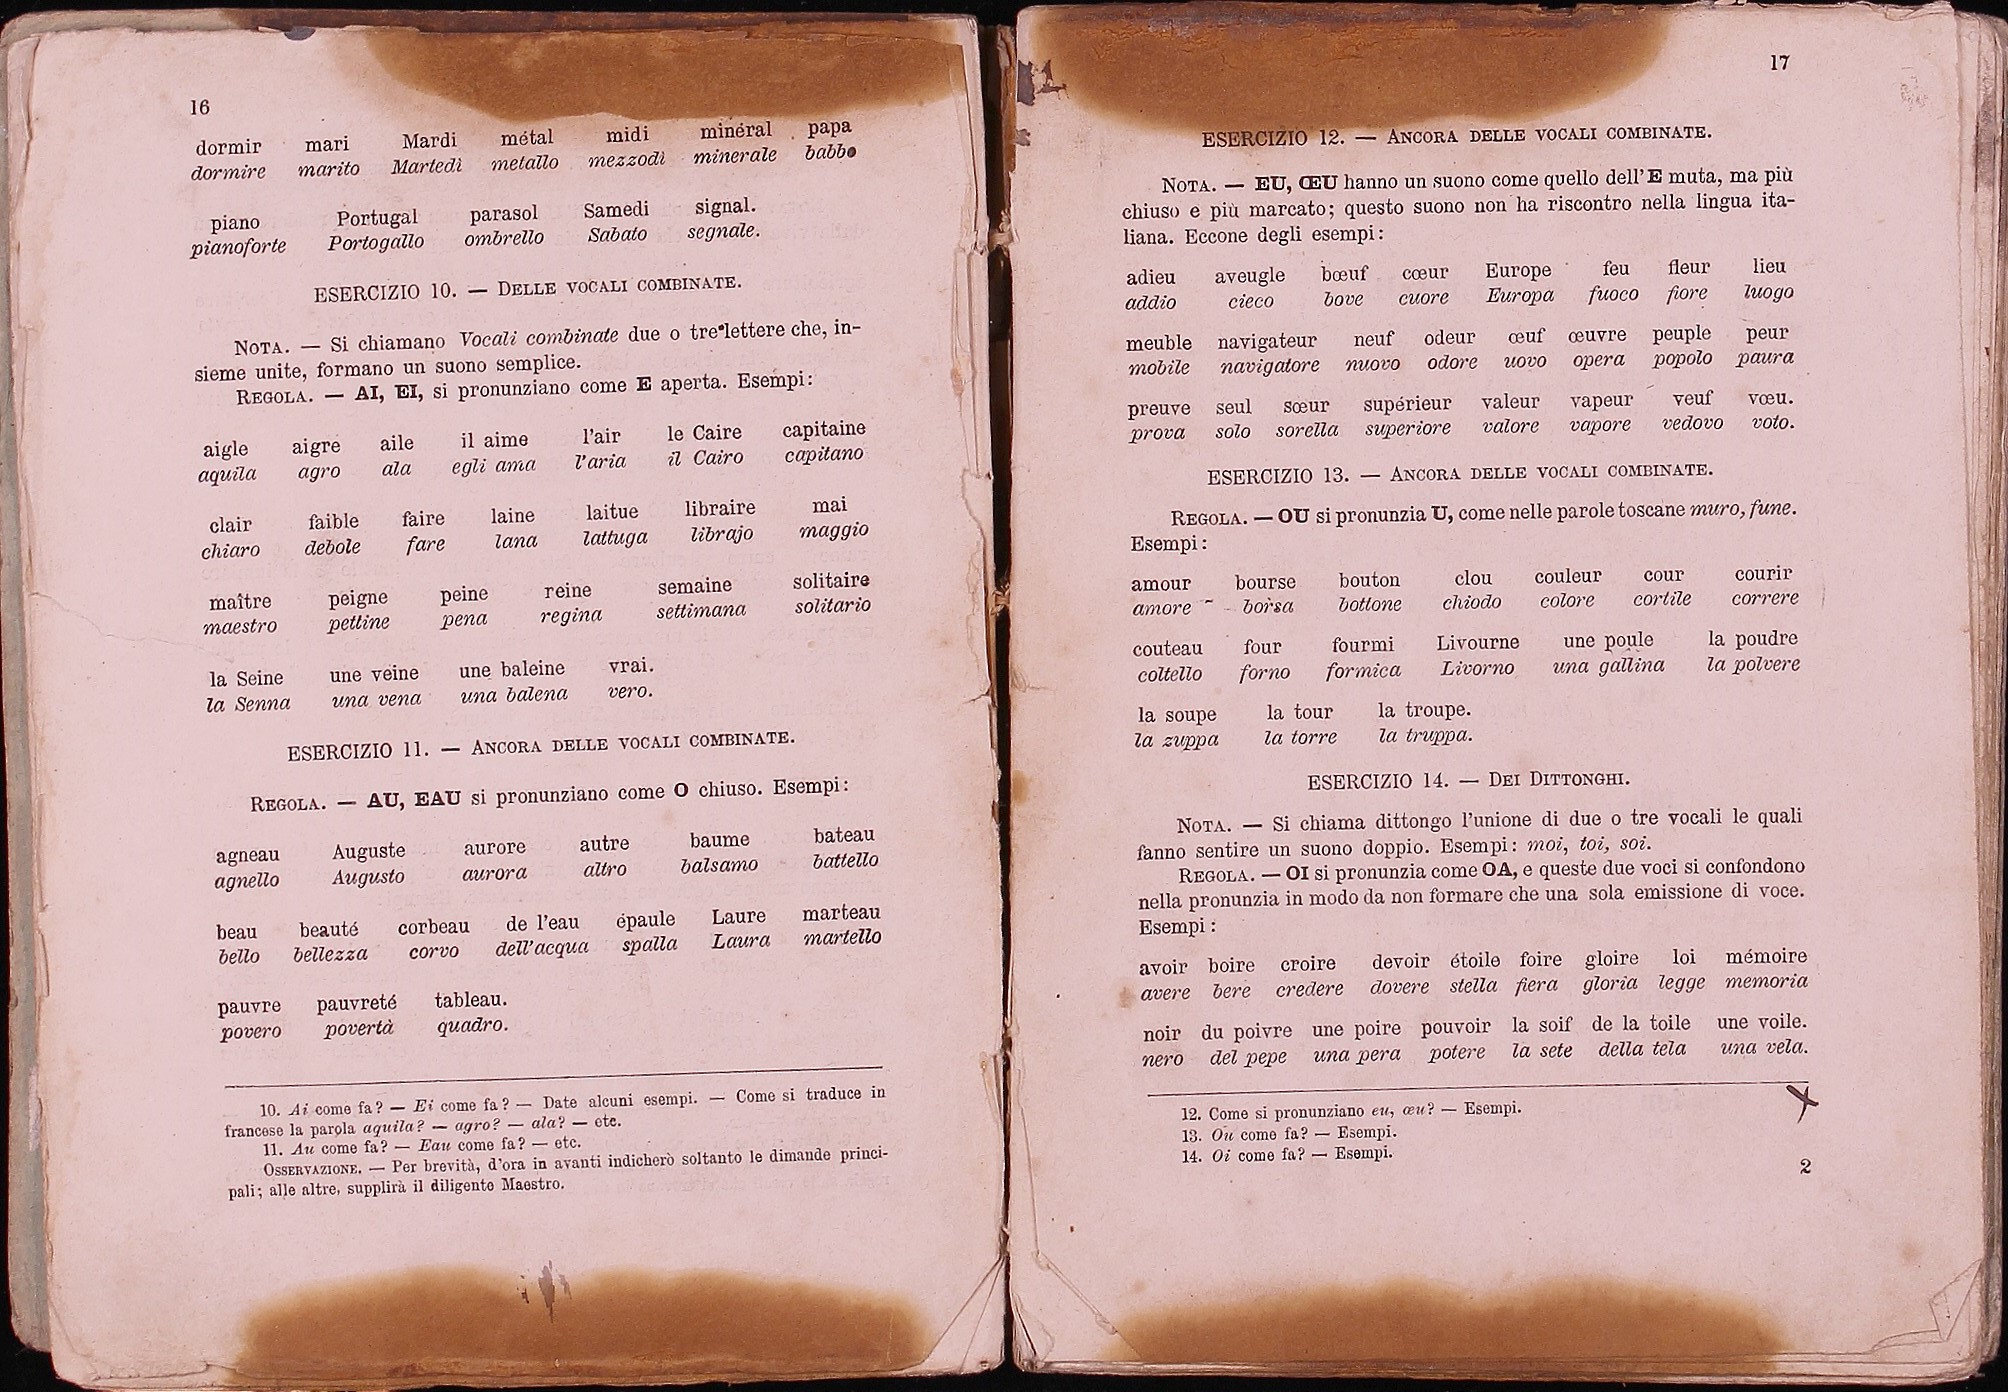 16
dormir mari Mardi métal midi minéral papa
dormire marito Martedì metallo mezzodì minerale babbo
piano Portugal parasol Samedi signal.
pianoforte Portogallo ombrello Sabato segnale.
ESERCIZIO 10. — DELLE VOCALI COMBINATE.
NOTA. — Si chiamano Vocali combinate due o tre lettere che, in-
sieme unite, formano un suono semplice.
REGOLA. — AI, EI, si pronunziano come E aperta. Esempi:
aigle aigre aile il aime l'air le Caire capitaine
aquila agro ala egli ama l'aria il Cairo capitano
clair faible faire laine laitue libraire mai
chiaro debole fare lana lattuga librajo maggio
maître peigne peine reine semaine solitaire
maestro pettine pena regina settimana solitario
la Seine une veine une baleine vrai.
la Senna una vena una balena vero.
ESERCIZIO 11. — ANCORA DELLE VOCALI COMBINATE.
REGOLA. — AU, EAU si pronunziano come O chiuso. Esempi:
agneau Auguste aurore autre baume bateau
agnello Augusto aurora altro balsamo battello
beau beauté corbeau de l'eau épaule Laure marteau
bello bellezza corvo dell'acqua spalla Laura martello
pauvre pauvreté tableau.
povero povertà quadro.
10. Ai come fa? — Ei come fa? — Date alcuni esempi. — Come si traduce in
francese la parola aquila? — agro? — ala? — etc.
11. Au come fa? — Eau come fa? — etc.
OSSERVAZIONE. — Per brevità, d'ora in avanti indicherò soltanto le dimande princi-
pali; alle altre, supplirà il diligente Maestro.
17
ESERCIZIO 12. — ANCORA DELLE VOCALI COMBINATE.
NOTA. — EU, ŒU hanno un suono come quello dell'E muta, ma più
chiuso e più marcato; questo suono non ha riscontro nella lingua ita-
liana. Eccone degli esempi:
adieu aveugle bœuf cœur Europe feu fleur lieu
addio cieco bove cuore Europa fuoco fiore luogo
meuble navigateur neuf odeur œuf œuvre peuple peur
mobile navigatore nuovo odore uovo opera popolo paura
preuve seul sœur supérieur valeur vapeur veuf vœu.
prova solo sorella superiore valore vapore vedovo voto.
ESERCIZIO 13. — ANCORA DELLE VOCALI COMBINATE.
REGOLA. — OU si pronunzia U, come nelle parole toscane muro, fune.
Esempi:
amour bourse bouton clou couleur cour courir
amore borsa bottone chiodo colore cortile correre
couteau four fourmi Livourne une poule la poudre
coltello forno formica Livorno una gallina la polvere
la soupe la tour la troupe.
la zuppa la torre la truppa.
ESERCIZIO 14. — DEI DITTONGHI.
NOTA. — Si chiama dittongo l'unione di due o tre vocali le quali
fanno sentire un suono doppio. Esempi: moi, toi, soi.
REGOLA. — OI si pronunzia come OA, e queste due voci si confondono
nella pronunzia in modo da non formare che una sola emissione di voce.
Esempi:
avoir boire croire devoir étoile foire gloire loi mémoire
avere bere credere dovere stella fiera gloria legge memoria
noir du poivre une poire pouvoir la soif de la toile une voile.
nero del pepe una pera potere la sete della tela una vela.
12. Come si pronunziano eu, œu? — Esempi.
13. Ou come fa? — Esempi.
14. Oi come fa? — Esempi.
2